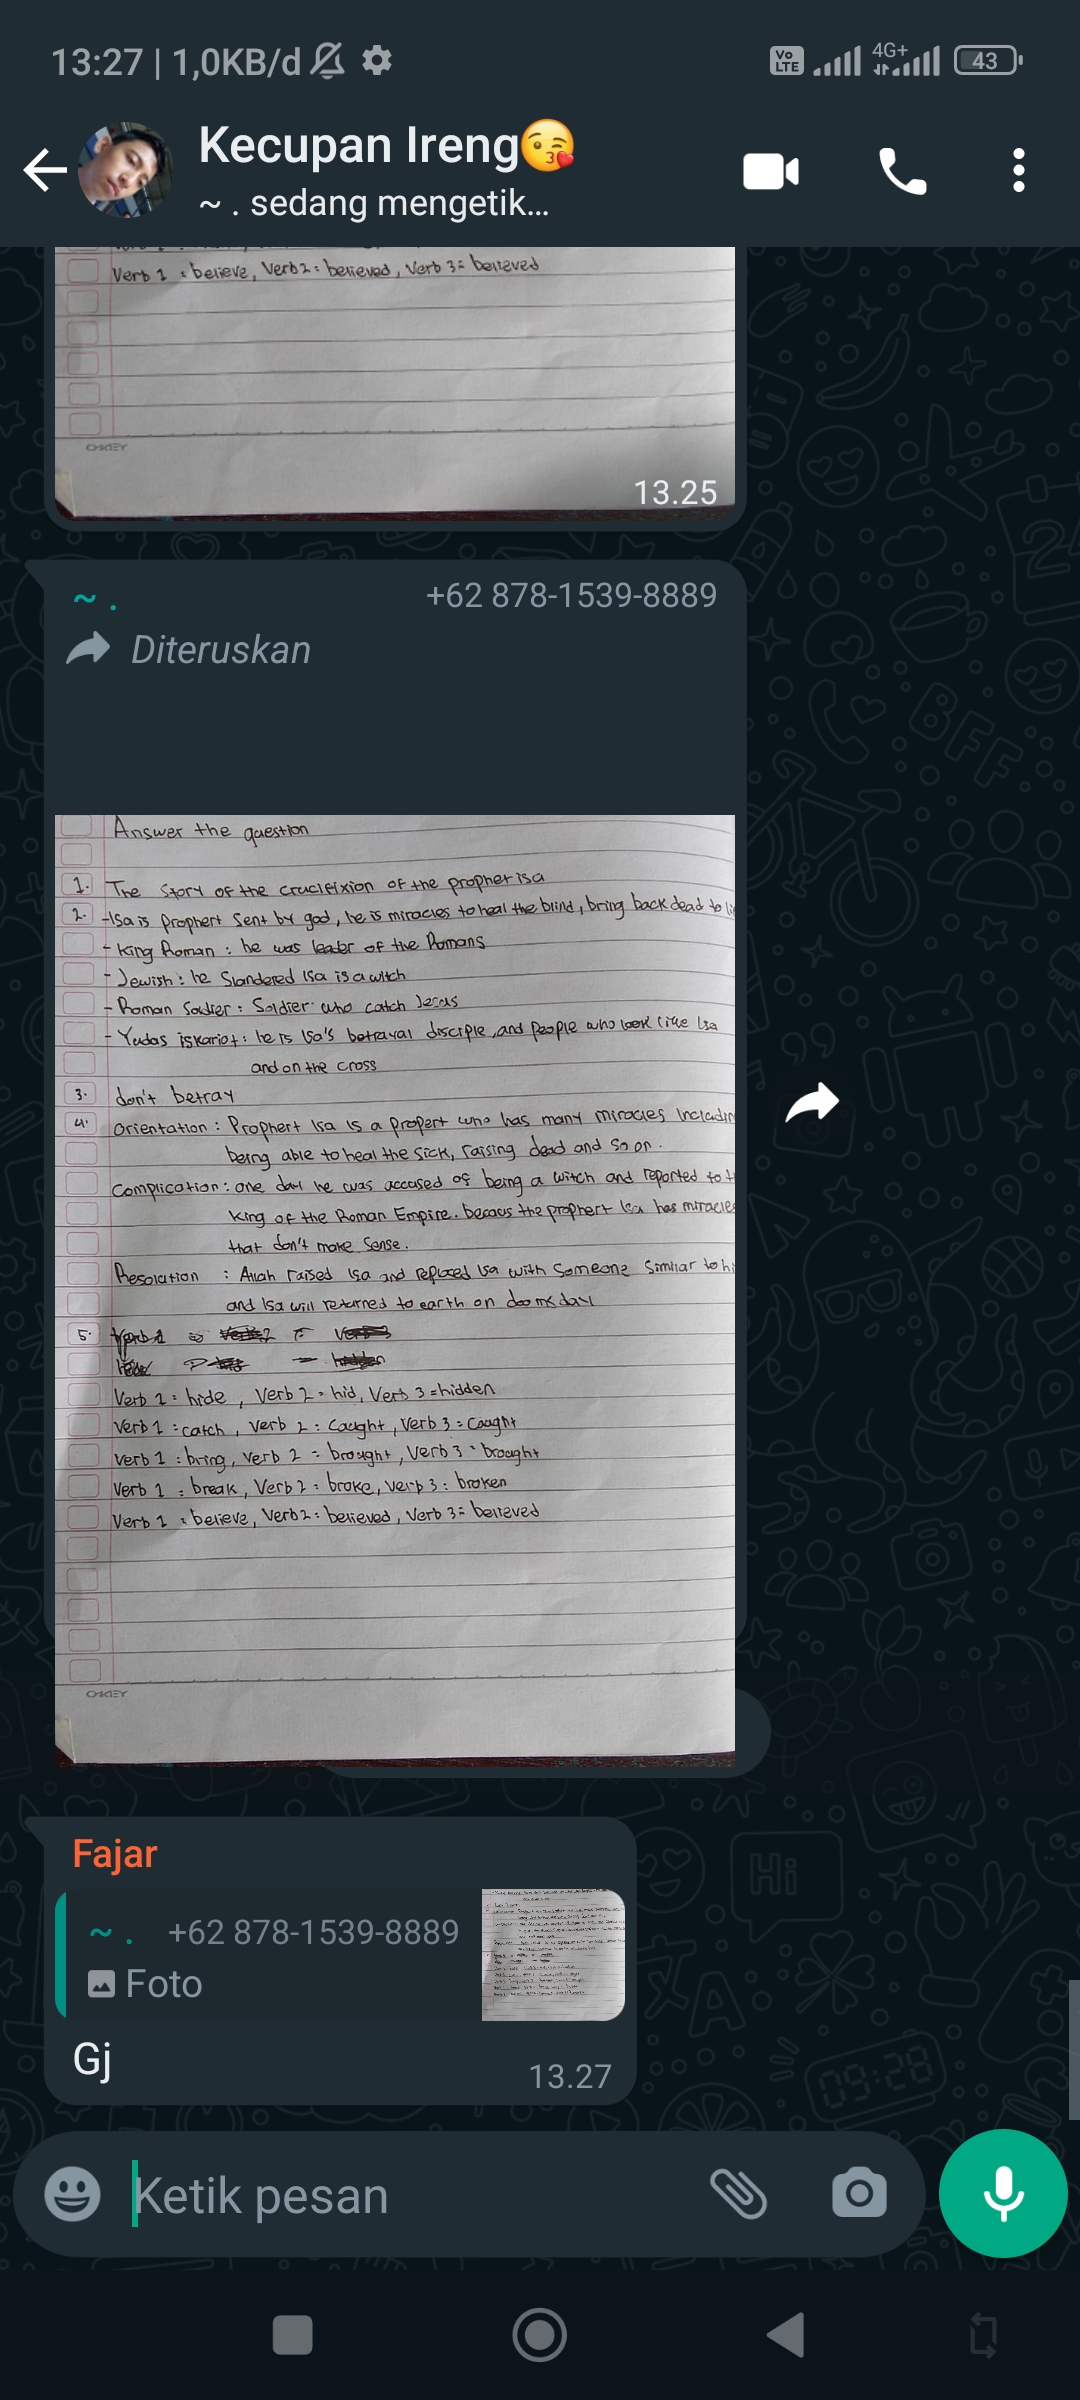 13:27 | 1,0KB/d
Vo LTE 4G+ 43
Kecupan Ireng
~ . sedang mengetik...
Verb 1 : believe, Verb 2 : believed, Verb 3 = believed
OKEY
13.25
~ . +62 878-1539-8889
Diteruskan
Answer the question
1. The Story of the crucifixion of the prophet isa
2. -Isa is Prophert Sent by god, he is miracles to heal the blind, bring back dead to li
- King Roman : he was leader of the Romans
- Jewish : he Slandered Isa is a witch
- Roman Soldier : Soldier who catch Jesus
- Yudas iskariot : he is Isa's betrayal disciple, and people who look like Isa
and on the cross
3. don't betray
4. Orientation : Prophert Isa is a propert who has many miracles Includin
being able to heal the sick, raising dead and so on.
Complication : one day he was accused of being a witch and reported to t
King of the Roman Empire. becaus the prophert Isa has miracles
that don't make Sense.
Resolation : Allah raised Isa and replaced Isa with Someone Similar to hi
and Isa will returned to earth on doomsday
5.
Verb 1 = hide, Verb 2 = hid, Verb 3 = hidden
Verb 1 : catch, Verb 2 : Caught, Verb 3 = Caught
Verb 1 : bring, Verb 2 = brought, Verb 3 = brought
Verb 1 : break, Verb 2 = broke, Verb 3 : broken
Verb 1 : believe, Verb 2 : believed, Verb 3 = believed
OKEY
Fajar
~ . +62 878-1539-8889
Foto
Gj
13.27
Ketik pesan